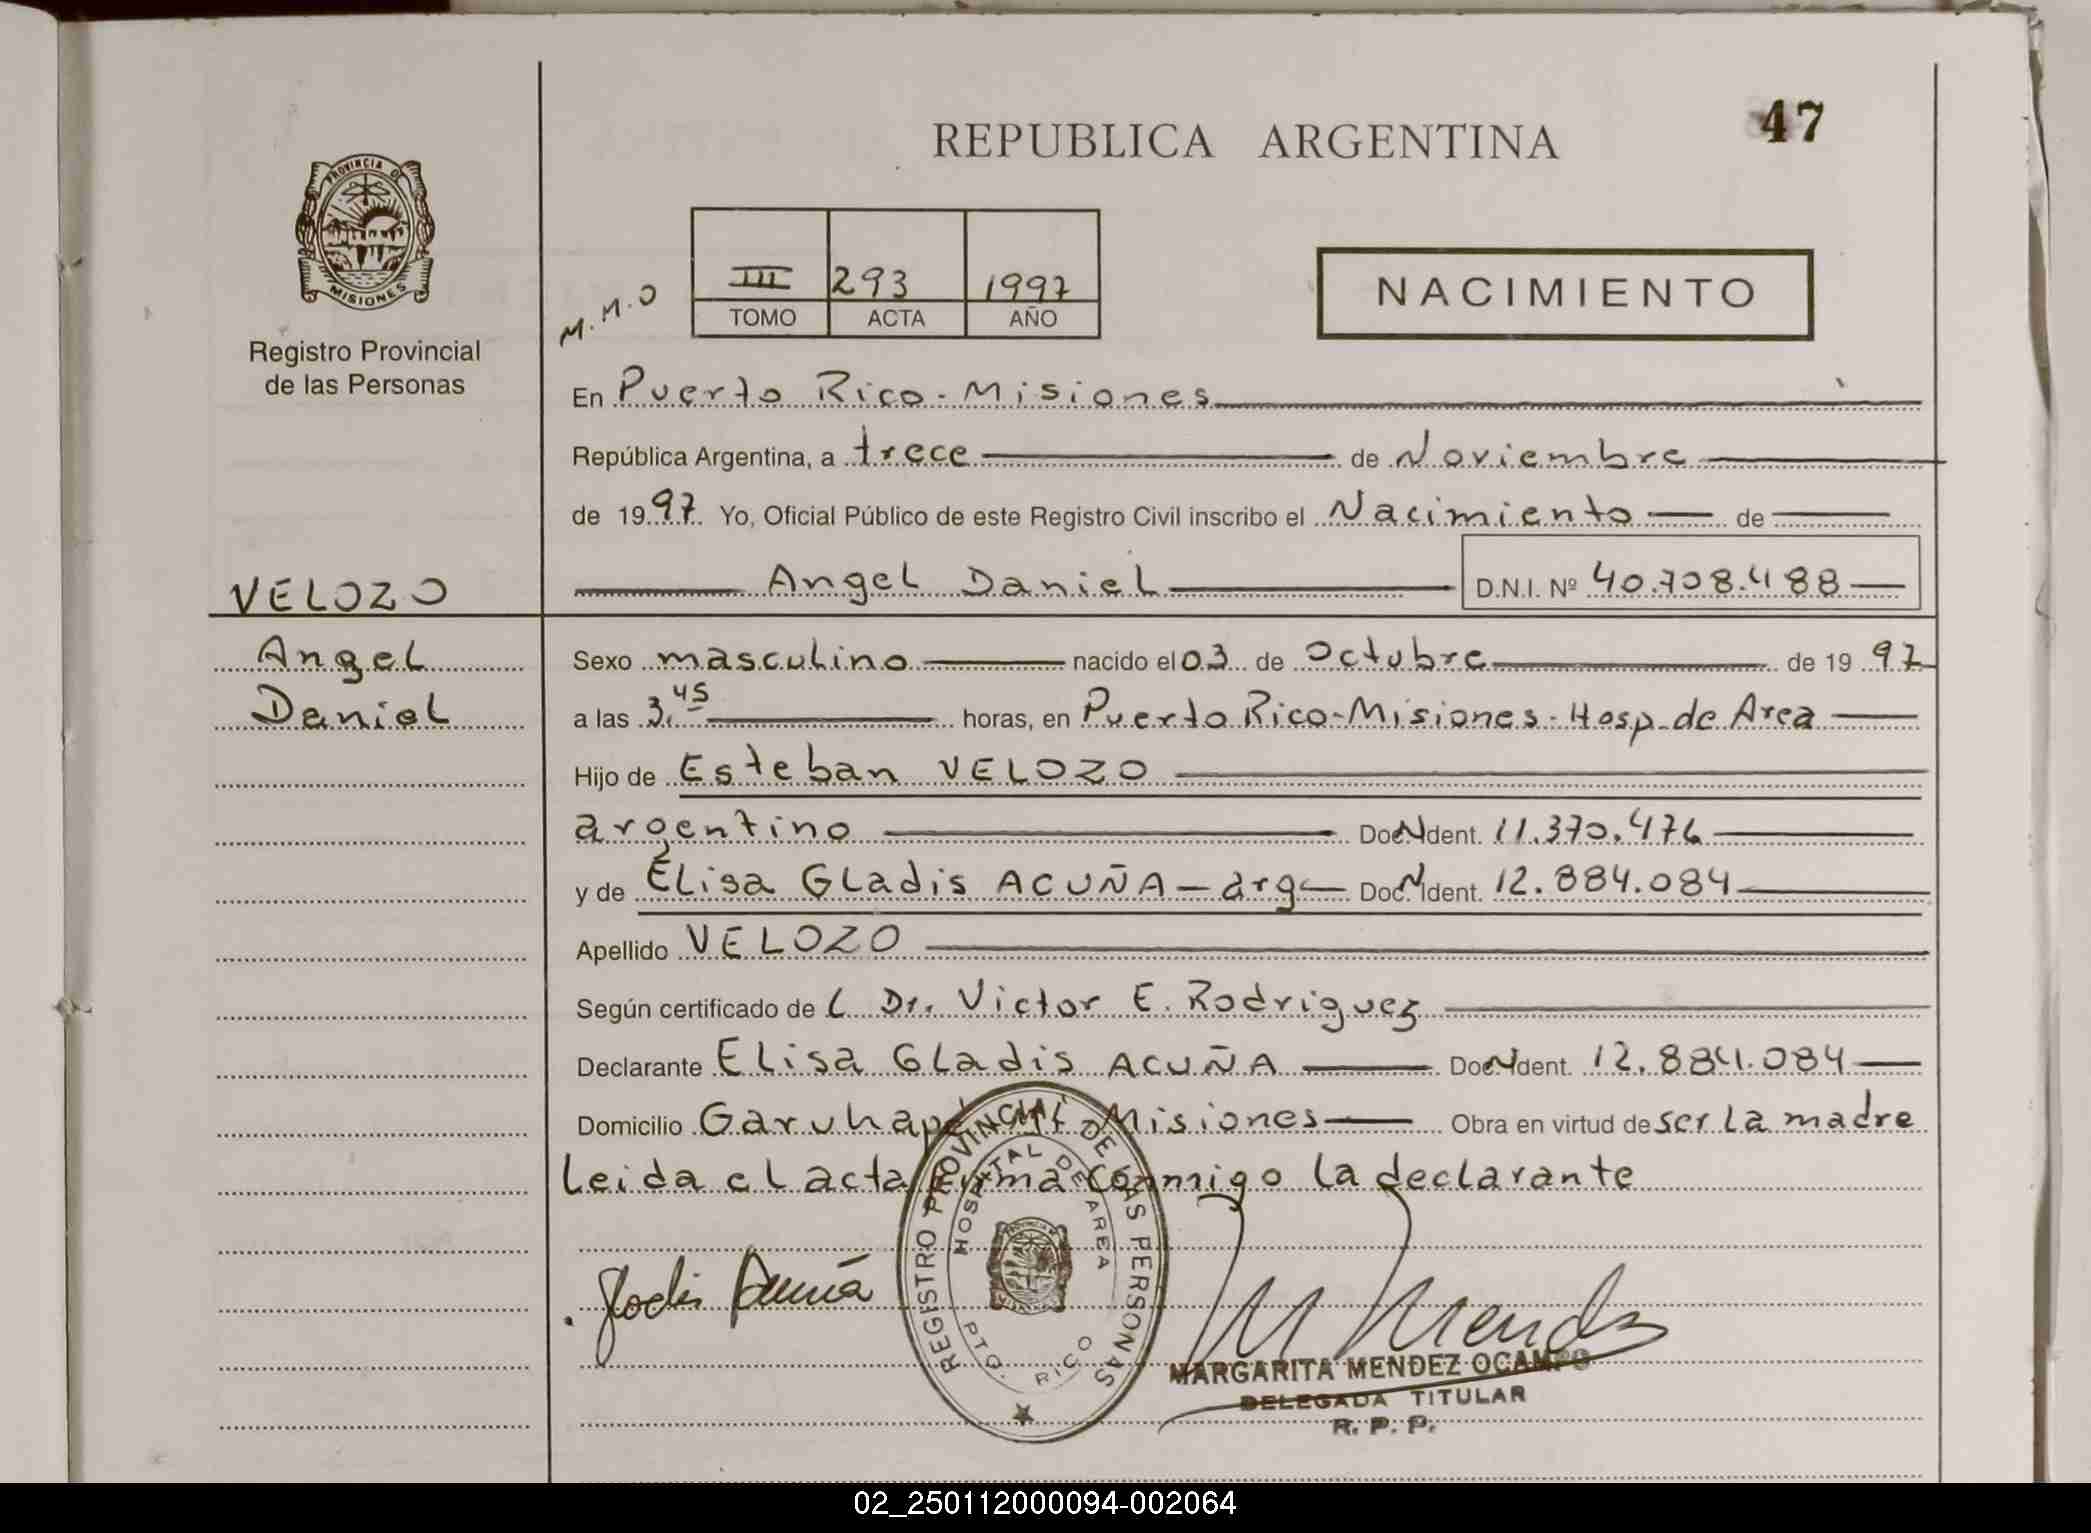 47
REPUBLICA ARGENTINA
PROVINCIA DE
MISIONES
Registro Provincial
de las Personas
M.M.O
III 293 1997
TOMO ACTA AÑO
NACIMIENTO
En Puerto Rico - Misiones
República Argentina, a trece de Noviembre
de 1997 Yo, Oficial Público de este Registro Civil inscribo el Nacimiento de
VELOZO
Angel Daniel D.N.I. Nº 40.708.488
Angel
Sexo masculino nacido el 03 de Octubre de 1997
Daniel
a las 3.45 horas, en Puerto Rico-Misiones-Hosp. de Area
Hijo de Esteban VELOZO
argentino Doc. N Ident. 11.370.476
y de Elisa Gladis ACUÑA - arg - Doc. N Ident. 12.884.084
Apellido VELOZO
Según certificado de l Dr. Victor E. Rodriguez
Declarante Elisa Gladis ACUÑA Doc. N Ident. 12.884.084
Domicilio Garuhapé Misiones Obra en virtud de ser la madre
Leida el acta firma conmigo la declarante
REGISTRO PROVINCIAL DE LAS PERSONAS
HOSPITAL DE AREA
PTO. RICO
Gladis Acuña
M Mendez
MARGARITA MENDEZ OCAMPO
DELEGADA TITULAR
R. P. P.
02_250112000094-002064